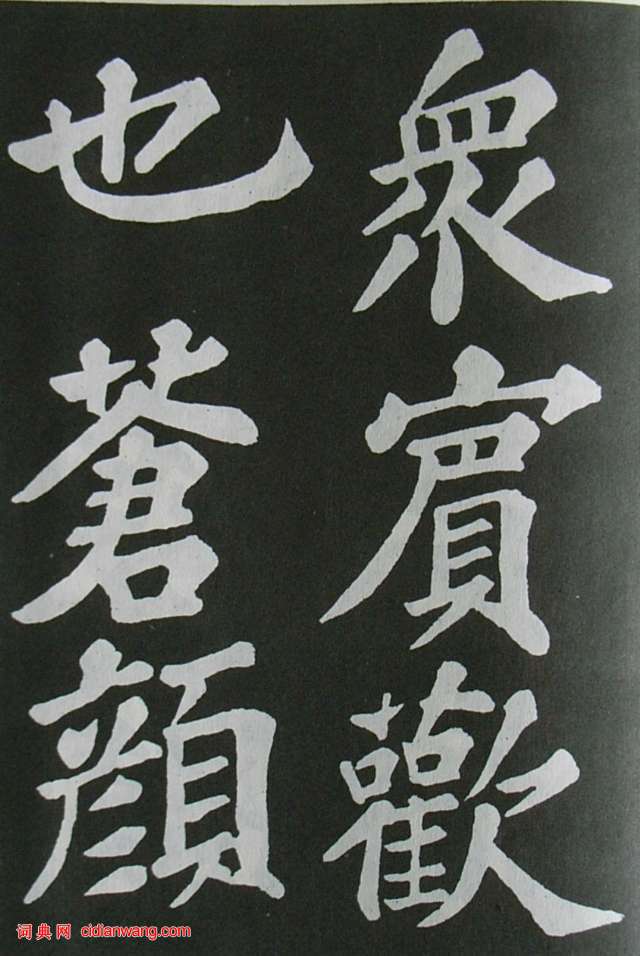 眾賓歡
也蒼顏
词典网 cidianwang.com